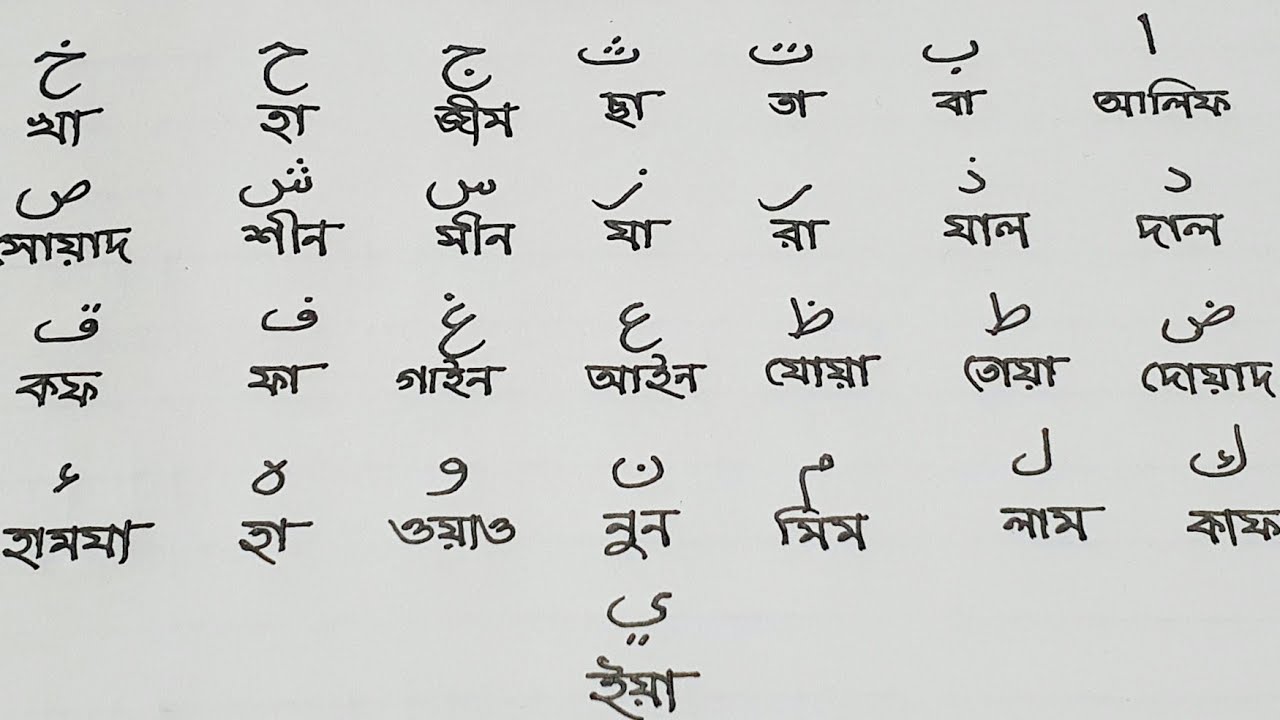 ا ب ت ث ج ح خ
আলিফ বা তা ছা জীম হা খা
د ذ ر ز س ش ص
দাল যাল রা যা সীন শীন সোয়াদ
ض ط ظ ع غ ف ق
দোয়াদ তোয়া যোয়া আইন গাইন ফা কফ
ك ل م ن و ه ء
কাফ লাম মিম নুন ওয়াও হা হামযা
ي
ইয়া